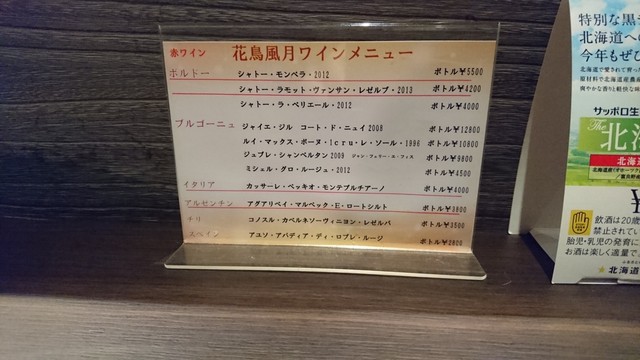 赤ワイン 花鳥風月ワインメニュー
ボルドー シャトー・モンペラ・2012 ボトル¥5500
シャトー・ラモット・ヴァンサン・レゼルブ・2013 ボトル¥4200
シャトー・ラ・ベリエール・2012 ボトル¥4000
ブルゴーニュ ジャイエ・ジル コート・ド・ニュイ2008 ボトル¥12800
ルイ・マックス・ボーヌ・1cru・レ・ソール・1996 ボトル¥10800
ジュブレ・シャンベルタン2009 ジャン・フェリー・エ・フィス ボトル¥9800
ミシェル・グロ・ルージュ・2012 ボトル¥4500
イタリア カッサーレ・ベッキオ・モンテプルチアーノ ボトル¥4000
アルゼンチン アグアリベイ・マルベック・E・ロートシルト ボトル¥3800
チリ コノスル・カベルネソーヴィニヨン・レゼルバ ボトル¥3500
スペイン アユソ・アバディア・ディ・ロブレ・ルージ ボトル¥2800
特別な黒
北海道への
今年もぜひ
サッポロ生
The
北海
飲酒は20歳
禁止されてい
胎児・乳児の発育に
お酒は楽しく適量で
★北海道